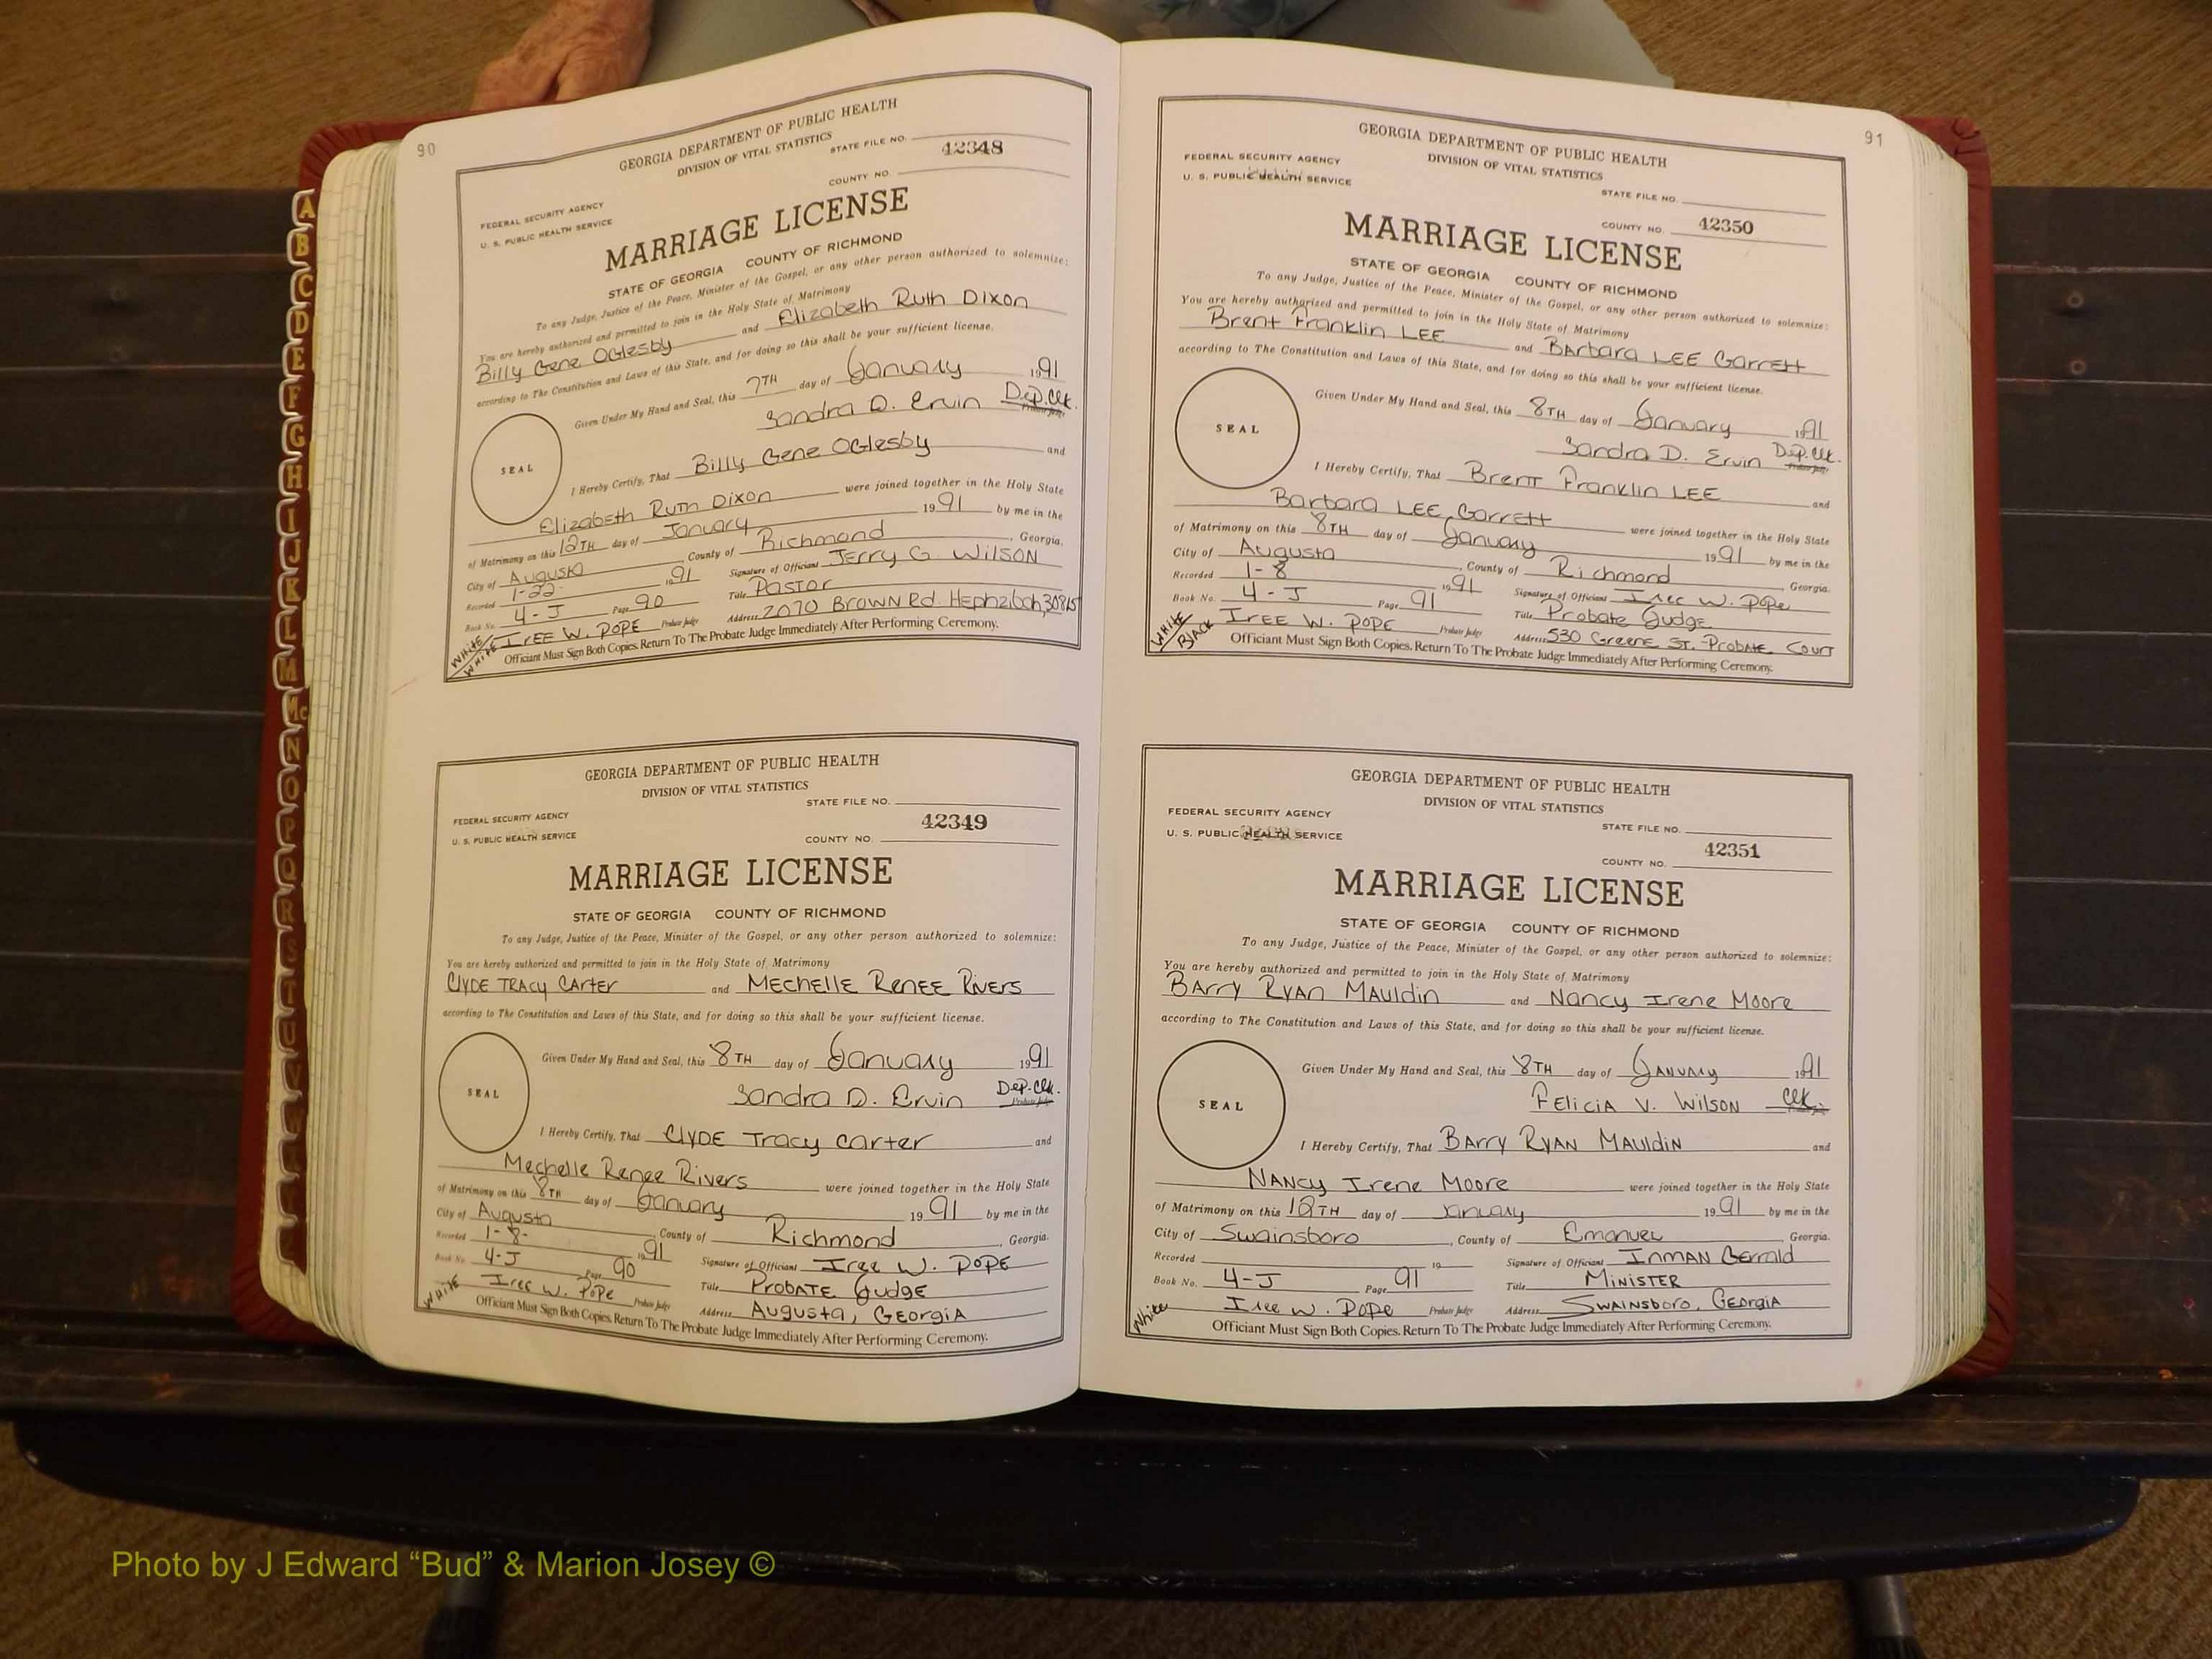 90
GEORGIA DEPARTMENT OF PUBLIC HEALTH
DIVISION OF VITAL STATISTICS
STATE FILE NO.
42348
COUNTY NO.
FEDERAL SECURITY AGENCY
U. S. PUBLIC HEALTH SERVICE
MARRIAGE LICENSE
STATE OF GEORGIA COUNTY OF RICHMOND
To any Judge, Justice of the Peace, Minister of the Gospel, or any other person authorized to solemnize:
You are hereby authorized and permitted to join in the Holy State of Matrimony
Billy Gene Oglesby and Elizabeth Ruth Dixon
according to The Constitution and Laws of this State, and for doing so this shall be your sufficient license.
Given Under My Hand and Seal, this 7TH day of January 1991
Sandra D. Ervin Dep. Clk.
Probate Judge
SEAL
I Hereby Certify, That Billy Gene Oglesby and
Elizabeth Ruth Dixon were joined together in the Holy State
of Matrimony on this 12TH day of January 1991 by me in the
City of Augusta County of Richmond, Georgia.
Recorded 1-22- 1991 Signature of Officiant Jerry G. Wilson
Book No. 4-J Page 90 Title Pastor
IrEE W. POPE Probate Judge Address 2070 BROWN Rd. Hephzibah, 30815
WHITE/WHITE
Officiant Must Sign Both Copies. Return To The Probate Judge Immediately After Performing Ceremony.
GEORGIA DEPARTMENT OF PUBLIC HEALTH
DIVISION OF VITAL STATISTICS
STATE FILE NO.
FEDERAL SECURITY AGENCY
U. S. PUBLIC HEALTH SERVICE
42349
COUNTY NO.
MARRIAGE LICENSE
STATE OF GEORGIA COUNTY OF RICHMOND
To any Judge, Justice of the Peace, Minister of the Gospel, or any other person authorized to solemnize:
You are hereby authorized and permitted to join in the Holy State of Matrimony
CLYDE TRACY CARTER and MECHELLE RENEE RIVERS
according to The Constitution and Laws of this State, and for doing so this shall be your sufficient license.
Given Under My Hand and Seal, this 8TH day of January 1991
Sandra D. Ervin Dep. Clk.
Probate Judge
SEAL
I Hereby Certify, That CLYDE Tracy Carter and
Mechelle Renee Rivers were joined together in the Holy State
of Matrimony on this 8TH day of January 1991 by me in the
City of Augusta, County of Richmond, Georgia.
Recorded 1-8- 1991 Signature of Officiant Iree W. POPE
Book No. 4-J Page 90 Title PROBATE Judge
Iree W. Pope Probate Judge Address Augusta, GEORGIA
WHITE
Officiant Must Sign Both Copies. Return To The Probate Judge Immediately After Performing Ceremony.
91
GEORGIA DEPARTMENT OF PUBLIC HEALTH
DIVISION OF VITAL STATISTICS
FEDERAL SECURITY AGENCY
U. S. PUBLIC HEALTH SERVICE
STATE FILE NO.
COUNTY NO. 42350
MARRIAGE LICENSE
STATE OF GEORGIA COUNTY OF RICHMOND
To any Judge, Justice of the Peace, Minister of the Gospel, or any other person authorized to solemnize:
You are hereby authorized and permitted to join in the Holy State of Matrimony
Brent Franklin LEE and BArbara LEE Garrett
according to The Constitution and Laws of this State, and for doing so this shall be your sufficient license.
Given Under My Hand and Seal, this 8TH day of January 1991
Sandra D. Ervin Dep. Clk.
Probate Judge
SEAL
I Hereby Certify, That Brent Franklin LEE and
Barbara LEE Garrett were joined together in the Holy State
of Matrimony on this 8TH day of January 1991 by me in the
City of Augusta, County of Richmond Georgia.
Recorded 1-8 1991 Signature of Officiant Iree W. Pope
Book No. 4-J Page 91 Title Probate Judge
IREE W. POPE Probate Judge Address 530 Greene St. Probate Court
WHITE/BLACK
Officiant Must Sign Both Copies. Return To The Probate Judge Immediately After Performing Ceremony.
GEORGIA DEPARTMENT OF PUBLIC HEALTH
DIVISION OF VITAL STATISTICS
FEDERAL SECURITY AGENCY
U. S. PUBLIC HEALTH SERVICE
STATE FILE NO.
COUNTY NO. 42351
MARRIAGE LICENSE
STATE OF GEORGIA COUNTY OF RICHMOND
To any Judge, Justice of the Peace, Minister of the Gospel, or any other person authorized to solemnize:
You are hereby authorized and permitted to join in the Holy State of Matrimony
BArry RYAN MAuldin and Nancy Irene Moore
according to The Constitution and Laws of this State, and for doing so this shall be your sufficient license.
Given Under My Hand and Seal, this 8TH day of January 1991
Felicia V. Wilson Clk.
SEAL
I Hereby Certify, That BArry RYAN MAuldin and
NANCy Irene Moore were joined together in the Holy State
of Matrimony on this 12TH day of January 1991 by me in the
City of Swainsboro, County of Emanuel Georgia.
Recorded 19 Signature of Officiant INMAN Gerrald
Book No. 4-J Page 91 Title MINISTER
Iree W. Pope Probate Judge Address SWAINSboro, GEOrgiA
White
Officiant Must Sign Both Copies. Return To The Probate Judge Immediately After Performing Ceremony.
A
B
C
D
E
F
G
H
I
J
K
L
M
Mc
N
O
P
Q
R
S
T
U
V
Photo by J Edward “Bud” & Marion Josey ©